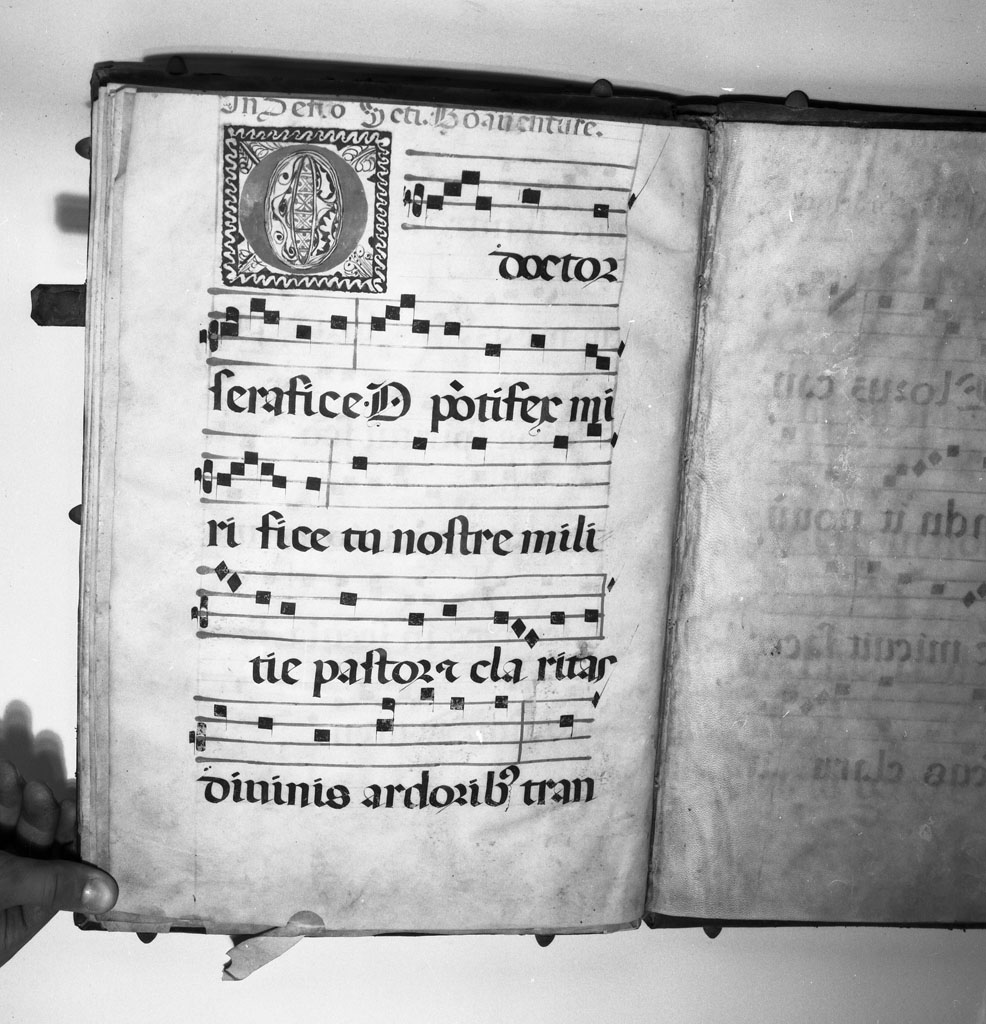 In Festo Scti. Bonaventure.
O doctor
serafice. D põtifex mi
ri fice tu nostre mili
tie pastor ⁊ cla ritas
diuinis ardoribꝰ tran